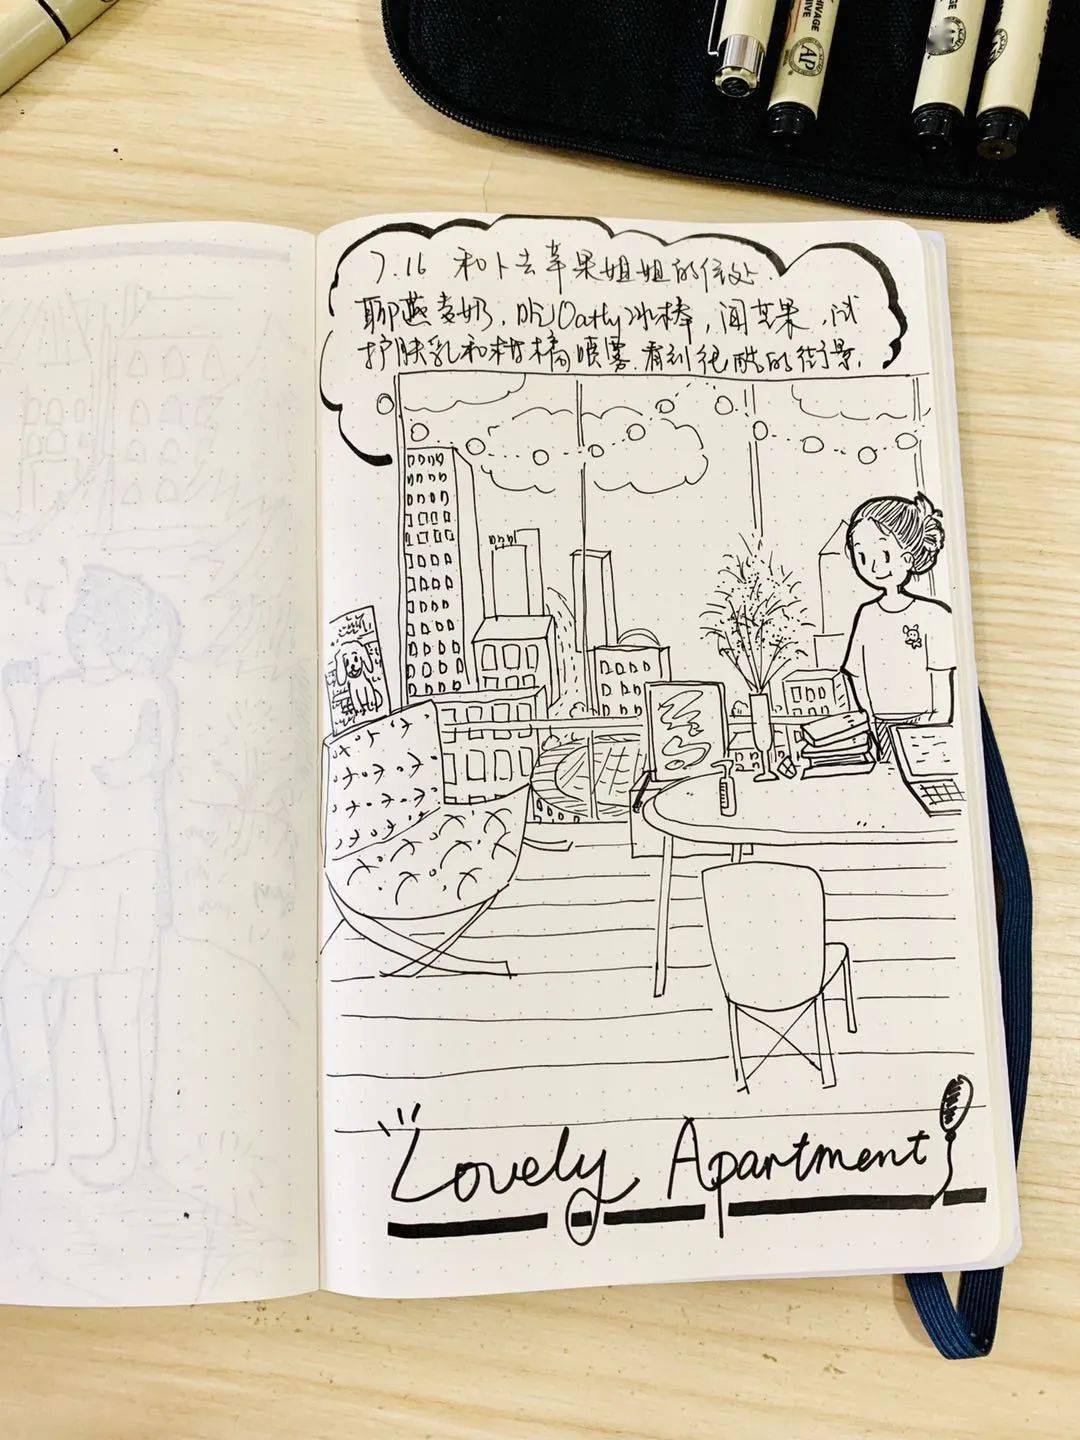 HIVAGE
HIVE
AP
7.16 和卜去苹果姐姐的住处.
聊燕麦奶, 吃Oatly冰棒, 闻苹果, 试
护肤乳和柑橘喷雾. 看到很酷的街景.
Lovely Apartment!